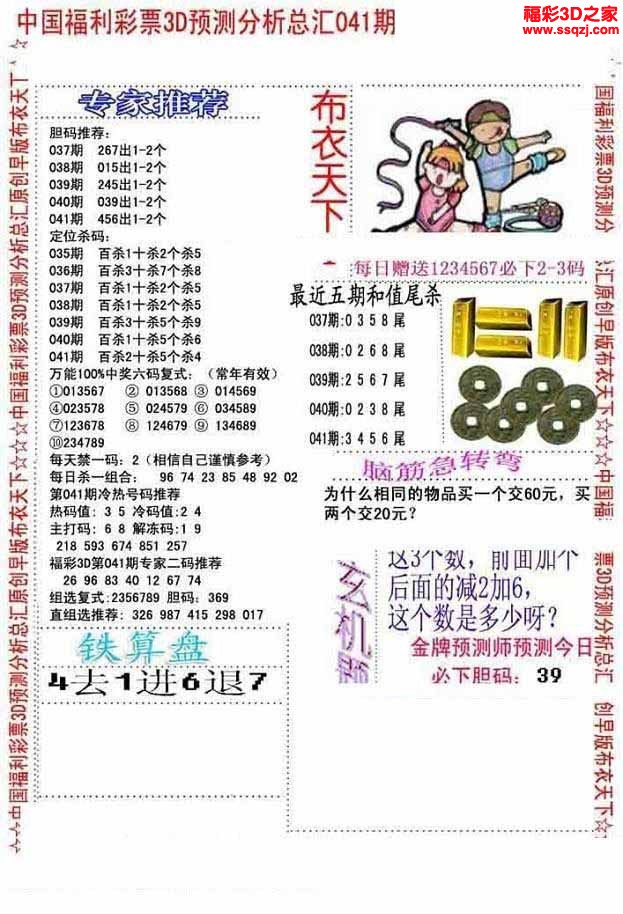 中国福利彩票3D预测分析总汇041期
福彩3D之家
www.ssqzj.com
专家推荐
胆码推荐：
037期 267出1-2个
038期 015出1-2个
039期 245出1-2个
040期 039出1-2个
041期 456出1-2个
定位杀码：
035期 百杀1十杀2个杀5
036期 百杀3十杀7个杀8
037期 百杀1十杀2个杀5
038期 百杀1十杀2个杀5
039期 百杀3十杀5个杀9
040期 百杀1十杀5个杀6
041期 百杀2十杀5个杀4
万能100%中奖六码复式：（常年有效）
①013567 ② 013568 ③ 014569
④023578 ⑤ 024579 ⑥ 034589
⑦123678 ⑧ 124679 ⑨ 134689
⑩234789
每天禁一码：2（相信自己谨慎参考）
每日杀一组合： 96 74 23 85 48 92 02
第041期冷热号码推荐
热码值：3 5 冷码值:2 4
主打码：6 8 解冻码:1 9
218 593 674 851 257
福彩3D第041期专家二码推荐
26 96 83 40 12 67 74
组选复式:2356789 胆码：369
直组选推荐：326 987 415 298 017
铁算盘
4去1进6退7
布衣天下
每日赠送1234567必下2-3码
最近五期和值尾杀
037期:0 3 5 8 尾
038期:0 2 6 8 尾
039期:2 5 6 7 尾
040期:0 2 3 8 尾
041期:3 4 5 6 尾
脑筋急转弯
为什么相同的物品买一个交60元，买
两个交20元？
玄机
这3个数，前面加个
后面的减2加6，
这个数是多少呀？
金牌预测师预测今日
必下胆码： 39
☆中国福利彩票3D预测分析总汇原创早版布衣天下
☆☆中国福利彩票3D预测分析总汇原创早版布衣天下☆☆☆
国福利彩票3D预测分
汇原创早版布衣天下☆☆☆中国福
票3D预测分析总汇
创早版布衣天下☆